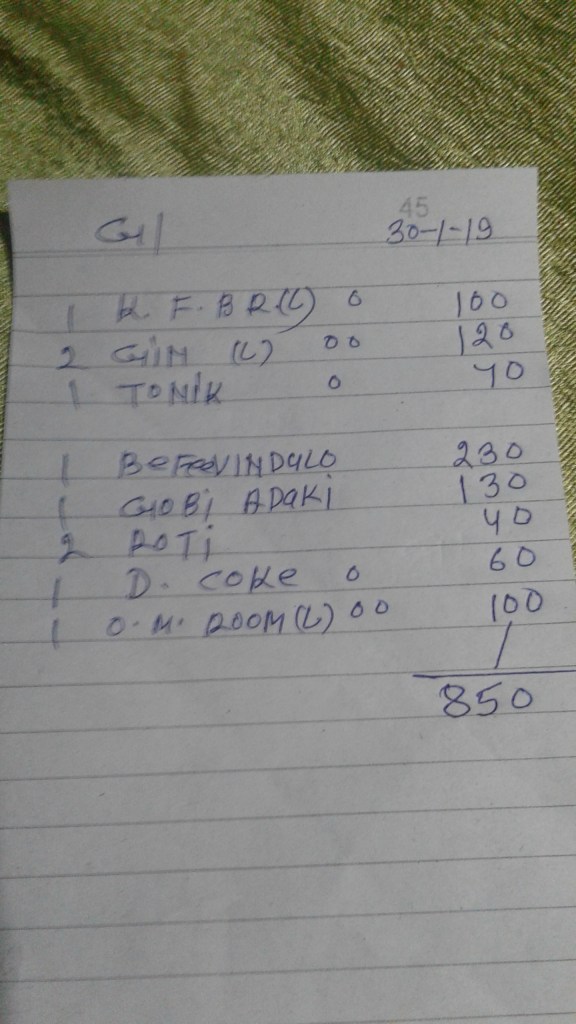 45
G1 30-1-19
1 K. F. BR(L) 0 100
2 GIN (L) 00 120
1 TONIK 0 70
1 BeFeeVINDULO 230
1 GOBi ADAKi 130
2 ROTi 40
1 D. COKe 0 60
1 O.M. ROOM(L) 00 100
850